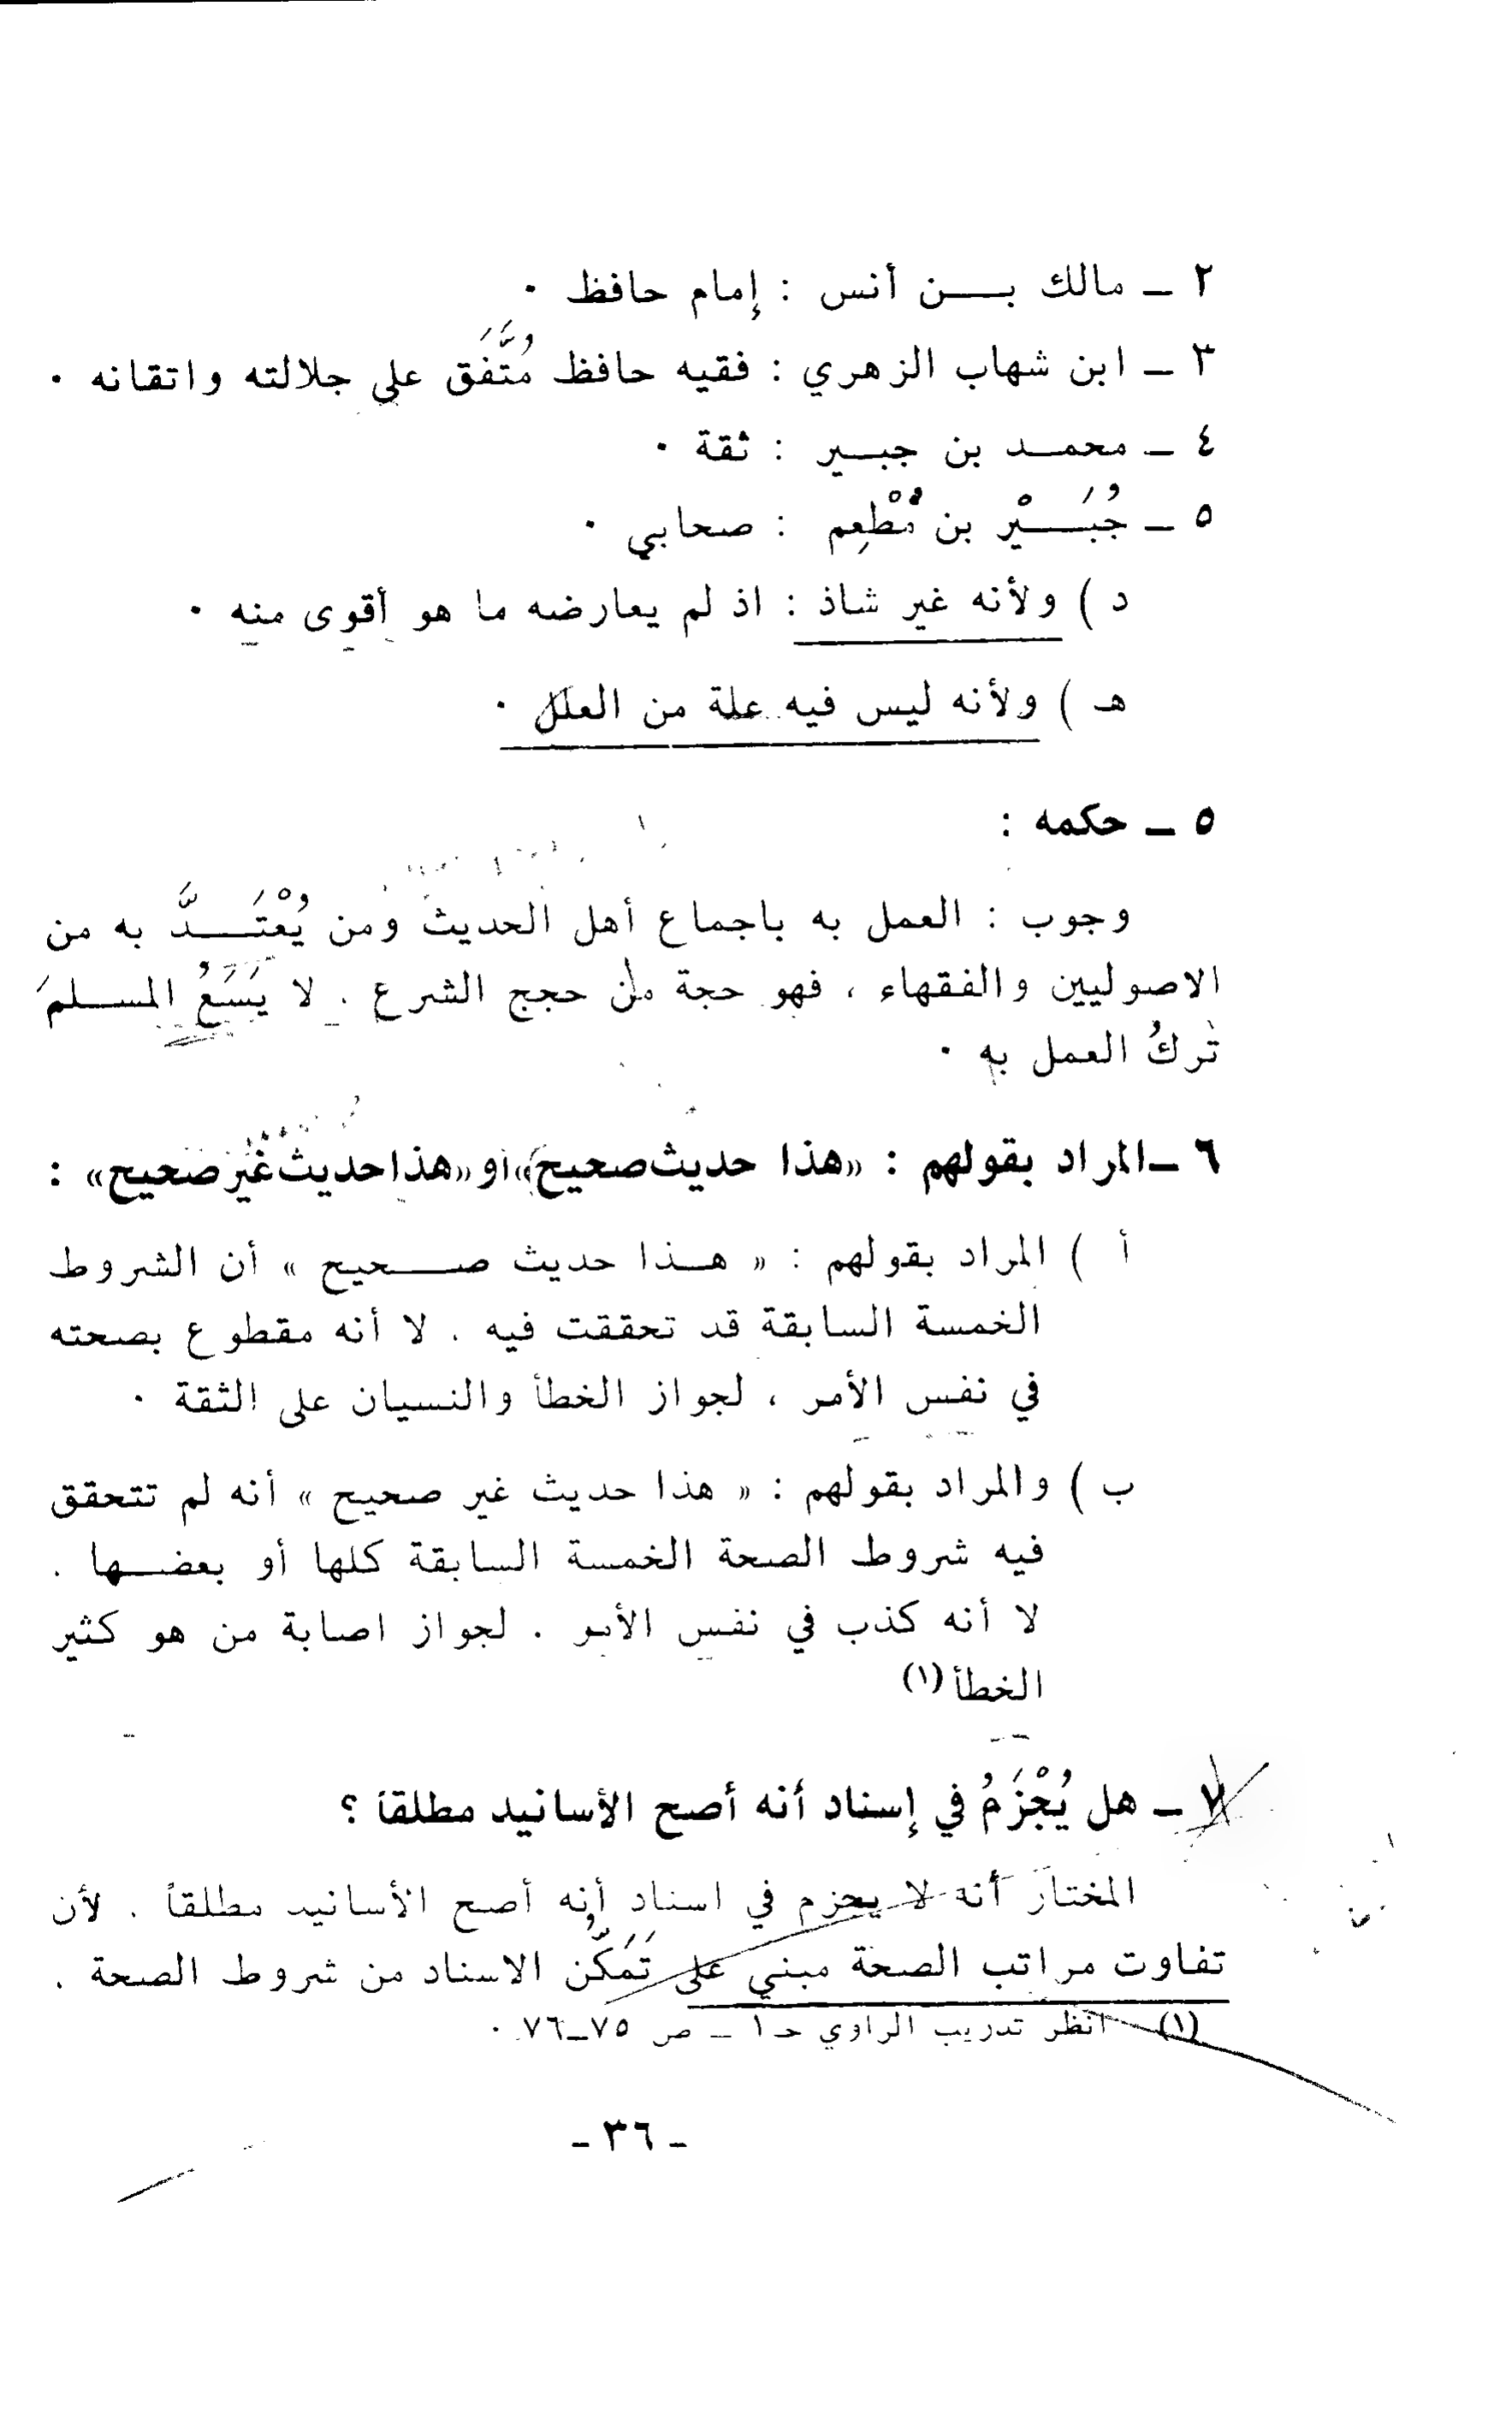 ٢ ــ مالك بــــن أنس : إمام حافظ ٠
٣ ــ ابن شهاب الزهري : فقيه حافظ مُتَّفَق على جلالته واتقانه ٠
٤ ــ محمــد بن جبــير : ثقة ٠
٥ ــ جُبَــــيْر بن مُطْعِم : صحابي ٠
د ) ولأنه غير شاذ : اذ لم يعارضه ما هو أقوى منه ٠
هـ ) ولأنه ليس فيه علة من العلل ٠
٥ ــ حكمه :
وجوب : العمل به باجماع أهل الحديث ومن يُعْتَــــدَّ به من
الاصوليين والفقهاء ، فهو حجة من حجج الشرع . لا يَسَعُ المســلمَ
تركُ العمل به ٠
٦ ــ المراد بقولهم : «هذا حديث صحيح» أو «هذا حديث غير صحيح» :
أ ) المراد بقولهم : « هــذا حديث صــــحيح » أن الشروط
الخمسة السابقة قد تحققت فيه . لا أنه مقطوع بصحته
في نفس الأمر ، لجواز الخطأ والنسيان على الثقة ٠
ب ) والمراد بقولهم : « هذا حديث غير صحيح » أنه لم تتحقق
فيه شروط الصحة الخمسة السابقة كلها أو بعضــها .
لا أنه كذب في نفس الأمر . لجواز اصابة من هو كثير
الخطأ (١)
٧ ــ هل يُجْزَمُ في إسناد أنه أصح الأسانيد مطلقاً ؟
المختار أنه لا يجزم في اسناد أنه أصح الأسانيد مطلقاً . لأن
تفاوت مراتب الصحة مبني على تَمَكُّن الاسناد من شروط الصحة .
(١) انظر تدريب الراوي حـ ١ ــ ص ٧٥ــ٧٦ ٠
ــ ٣٦ ــ